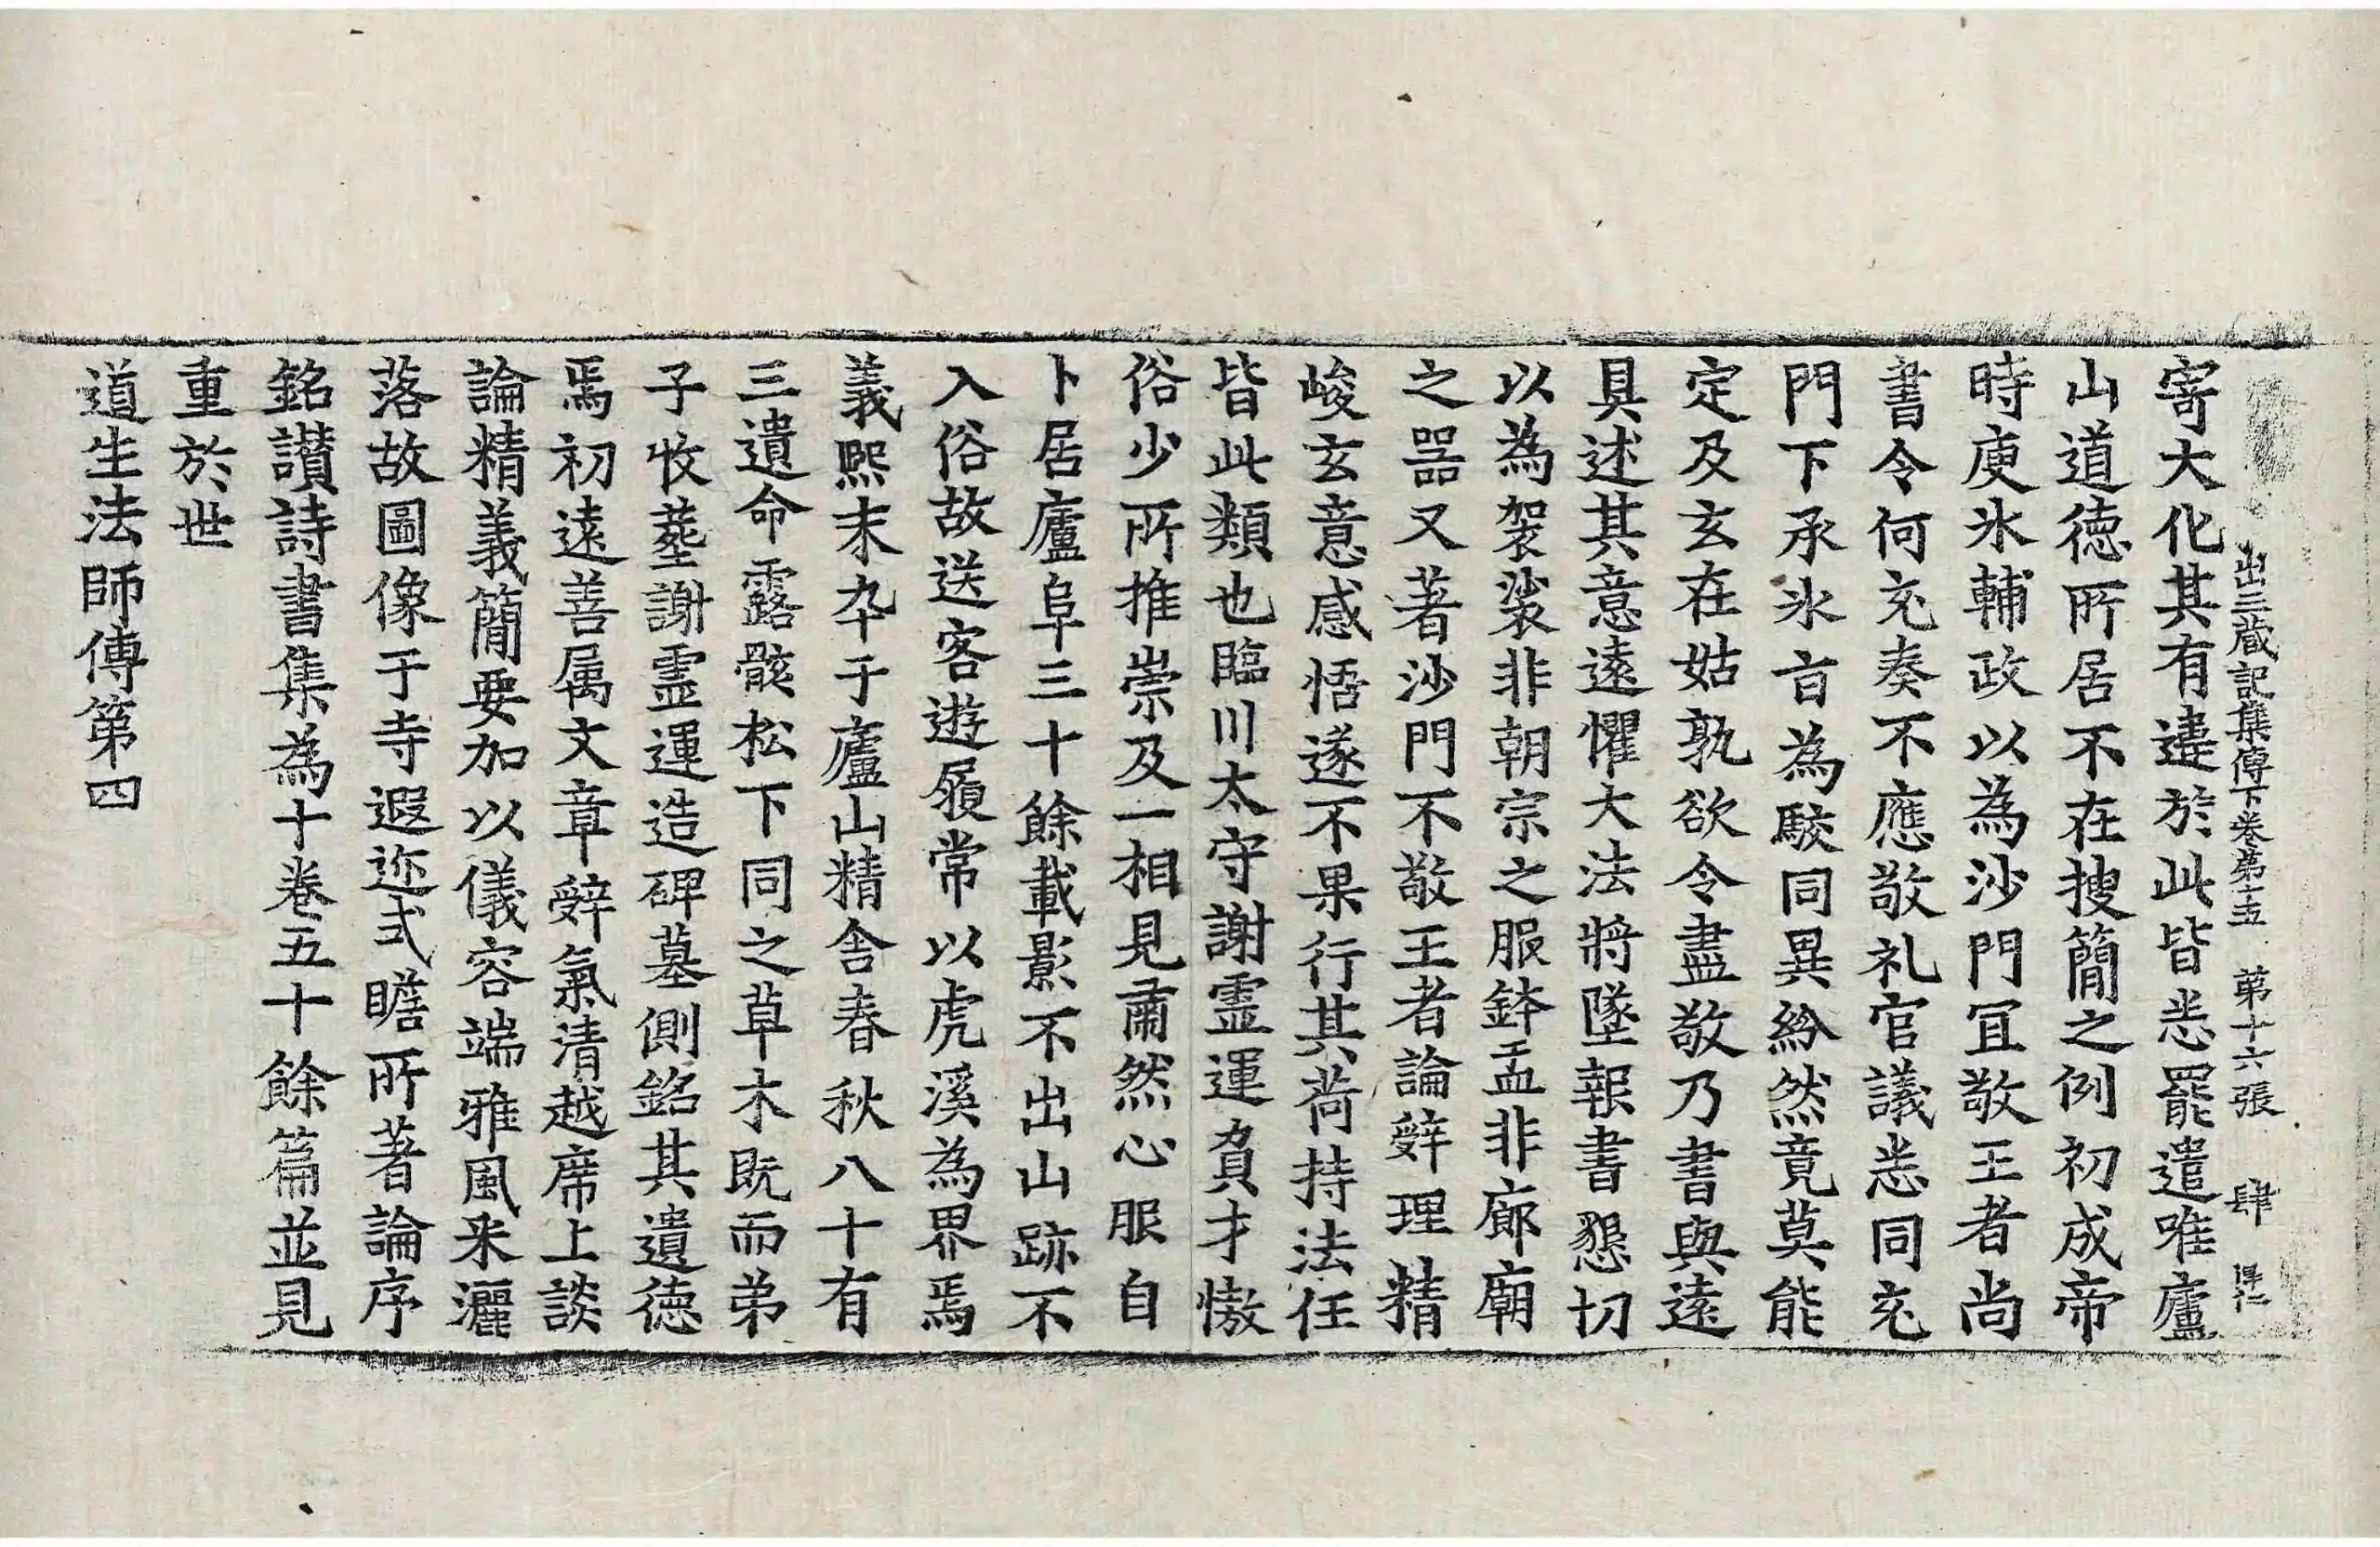 出三藏記集傳下卷第十五 第十六張 肆
寄大化其有違於此皆悉罷遣唯廬
山道德所居不在搜簡之例初成帝
時庾氷輔政以為沙門冝敬王者尚
書令何充奏不應敬礼官議悉同充
門下承氷旨為駮同異紛然竟莫能
定及玄在姑孰欲令盡敬乃書與遠
具述其意遠懼大法將墜報書懇切
以為袈裟非朝宗之服鉢盂非廊廟
之器又著沙門不敬王者論辝理精
峻玄意感悟遂不果行其荷持法任
皆此類也臨川太守謝霊運負才憿
俗少所推崇及一相見肅然心服自
卜居廬阜三十餘載影不出山跡不
入俗故送客遊履常以虎溪為界焉
義熙末卒于廬山精舎春秋八十有
三遺命露骸松下同之草木既而弟
子收塟謝霊運造碑墓側銘其遺德
焉初遠善属文章辝氣清越席上談
論精義簡要加以儀容端雅風釆灑
落故圖像于寺遐迩式瞻所著論序
銘讚詩書集為十卷五十餘篇並見
重於世
道生法師傳第四